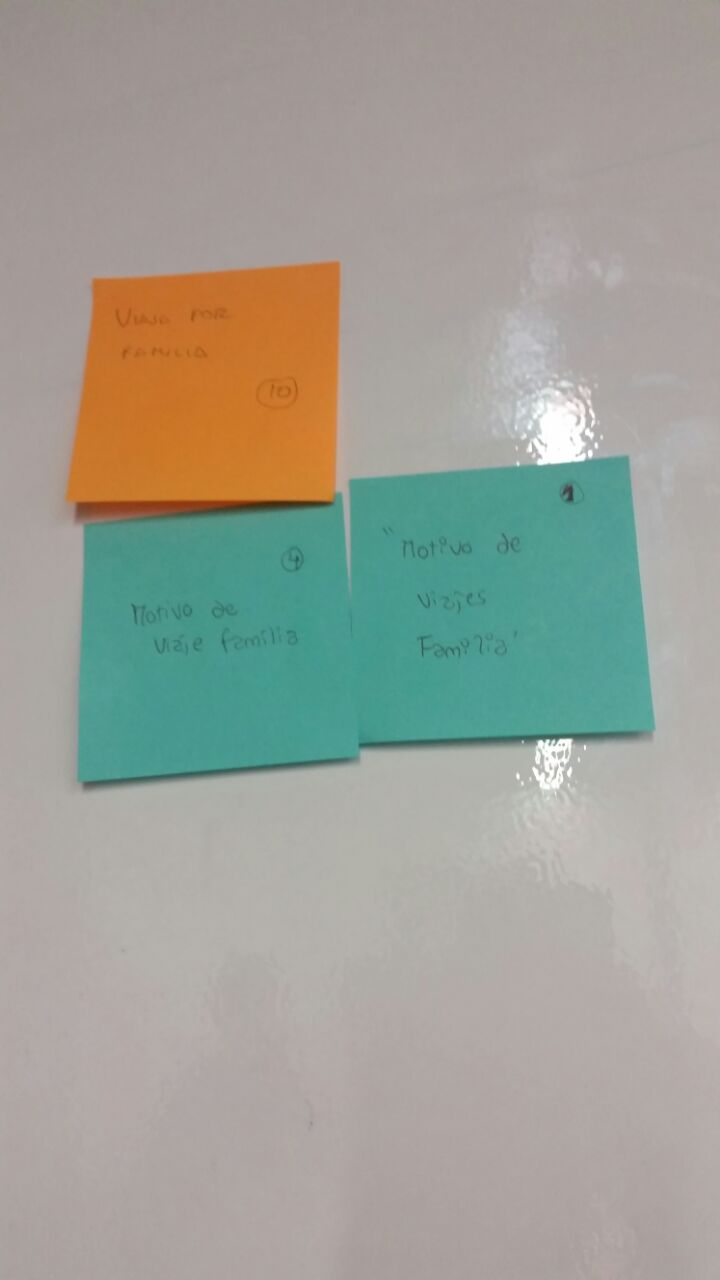 VIAJO POR
FAMILIA
10
4
Motivo de
viaje familia
1
"Motivo de
viajes
Familia"